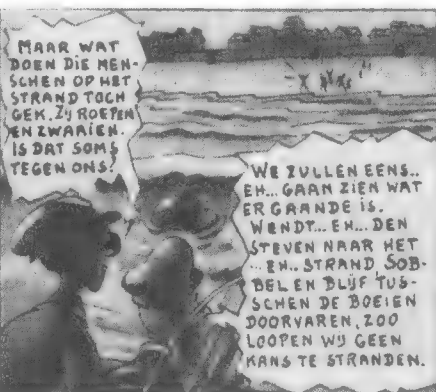 MAAR WAT
DOEN DIE MEN-
SCHEN OP HET
STRAND TOCH
GEK. ZIJ ROEPEN
EN ZWAAIEN.
IS DAT SOMS
TEGEN ONS?
WE ZULLEN EENS..
EH... GAAN ZIEN WAT
ER GAANDE IS.
WENDT... EH... DEN
STEVEN NAAR HET
...EH.. STRAND SOB-
BEL EN BLIJF TUS-
SCHEN DE BOEIEN
DOORVAREN, ZOO
LOOPEN WIJ GEEN
KANS TE STRANDEN.